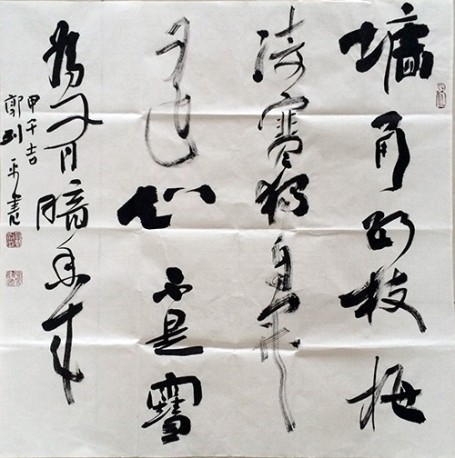 墙角数枝梅
凌寒独自开
遥知不是雪
为有暗香来
甲午吉
郭平书